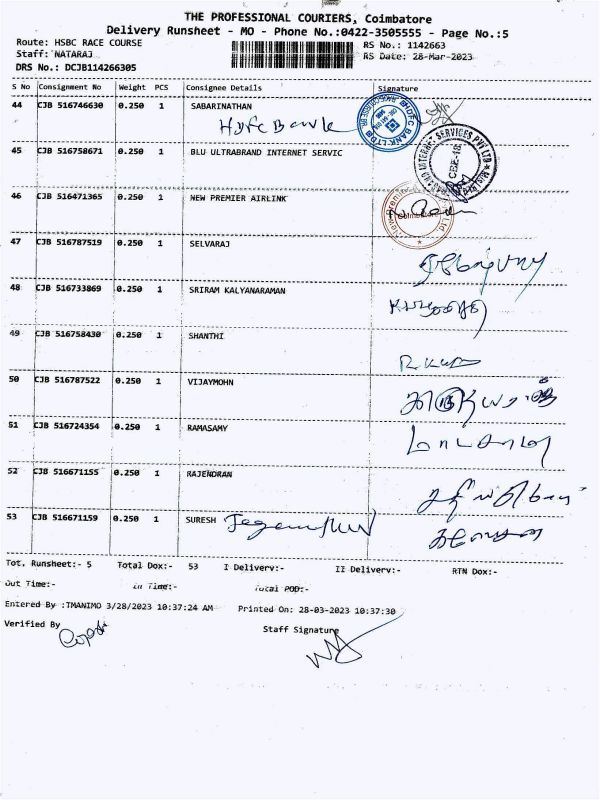 THE PROFESSIONAL COURIERS, Coimbatore
Delivery Runsheet - MO - Phone No.:0422-3505555 - Page No.:5
Route: HSBC RACE COURSE RS No.: 1142663
Staff: NATARAJ RS Date: 28-Mar-2023
DRS No.: DCJB114266305
S No Consignment No Weight PCS Consignee Details Signature
44 CJB 516746630 0.250 1 SABARINATHAN
HDFC Bank
HDFC BANK LTD
45 CJB 516758671 0.250 1 BLU ULTRABRAND INTERNET SERVIC
INTERNET SERVICES PVT LTD
CBE-18
46 CJB 516471365 0.250 1 NEW PREMIER AIRLINK
Coimbatore
47 CJB 516787519 0.250 1 SELVARAJ
48 CJB 516733869 0.250 1 SRIRAM KALYANARAMAN
49 CJB 516758430 0.250 1 SHANTHI
50 CJB 516787522 0.250 1 VIJAYMOHN
51 CJB 516724354 0.250 1 RAMASAMY
52 CJB 516671155 0.250 1 RAJENDRAN
53 CJB 516671159 0.250 1 SURESH
Tot. Runsheet:- 5 Total Dox:- 53 I Delivery:- II Delivery:- RTN Dox:-
Out Time:- In Time:- Total POD:-
Entered By :TMANIMO 3/28/2023 10:37:24 AM Printed On: 28-03-2023 10:37:30
Verified By Staff Signature